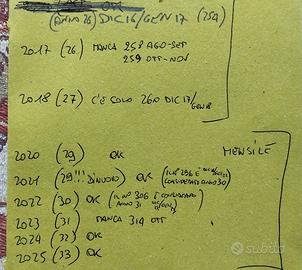 OK
(ANNO 26) DIC16/GEN 17 (254)
2017 (26) MANCA 258 AGO-SET
259 OTT-NOV
2018 (27) C'È SOLO 260 DIC17/GEN18
MENSILE
2020 (29) OK
2021 (29!!! DI NUOVO) OK (IL N° 296 È
CONSIDERATO ANNO 30)
2022 (30) OK (IL N° 306 È CONSIDERATO
ANNO 31
2023 (31) MANCA 314 OTT
2024 (32) OK
2025 (33) OK
subito